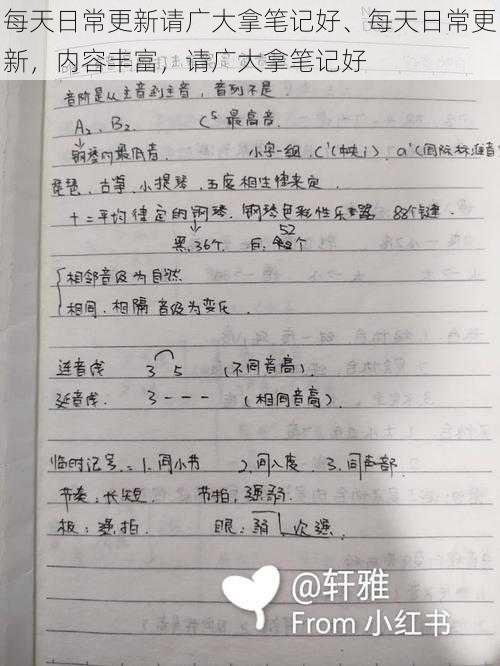 每天日常更新请广大拿笔记好、每天日常更
新，内容丰富，请广大拿笔记好
音阶是从主音到主音，音列不是
A₂、B₂　C⁵ 最高音.
钢琴的最低音.　小字一组. c'(中央i). a'(国际标准音)
琵琶、古筝、小提琴、五度相生律来定.
十二平均律定的钢琴. 钢琴色彩性乐器 88个键.
黑.36个. 白: 52个
相邻音级为自然
相同、相隔音级为变化.
连音线　3 5　(不同音高)
延音线.　3 - - -　(相同音高).
临时记号: 1.同小节　2.同八度　3.同声部.
节奏: 长短.　节拍: 强弱.
板: 强拍　眼: 弱、次强.
@轩雅
From 小红书